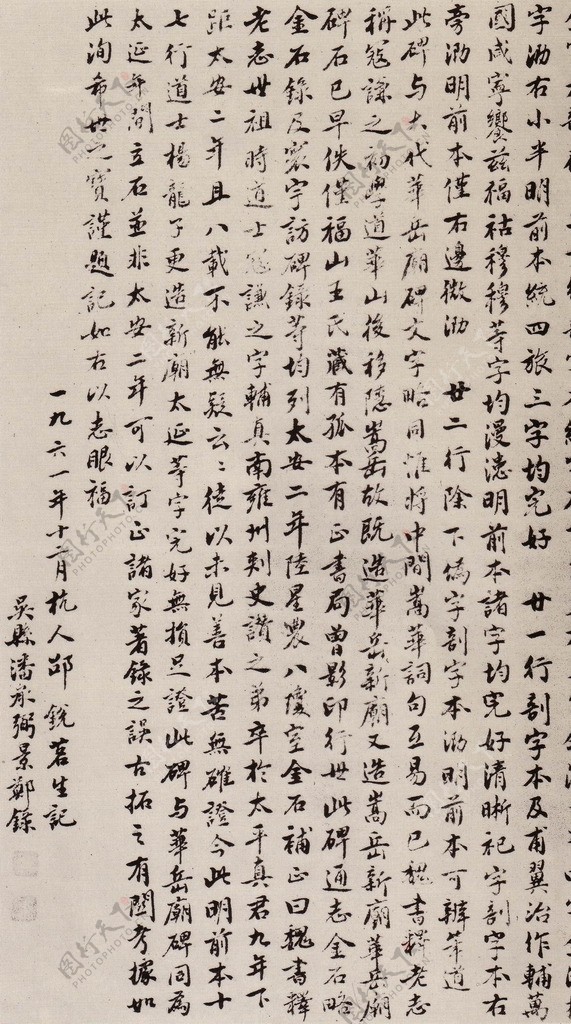 字泐右小半明前本統四旅三字均完好 廿一行剖字本及甫翼治作輔萬
國咸寧饗茲福祜穆穆等字均漫漶明前本諸字均完好清晰祀字剖字本右
旁泐明前本僅右邊微泐 廿二行除下偽字剖字本泐明前本可辨筆道
此碑與大代華岳廟碑文字略同惟將中間嵩華詞句互易而已魏書釋老志
稱寇謙之初學道華山後移隱嵩岳故既造華岳新廟又造嵩岳新廟華岳廟
碑石已早佚僅福山王氏藏有孤本有正書局曾影印行世此碑通志金石略
金石錄及寰宇訪碑錄等均列太安二年陸星農八瓊室金石補正曰魏書釋
老志世祖時道士寇謙之字輔真南雍州刺史讚之弟卒於太平真君九年下
距太安二年且八載不能無疑云云徒以未見善本苦無確證今此明前本十
七行道士楊龍子更造新廟太延等字完好無損足證此碑與華岳廟碑同為
太延年間立石並非太安二年可以訂正諸家著錄之誤古拓之有關考據如
此洵希世之寶謹題記如右以志眼福
一九六一年十二月杭人邵銳茗生記
吳縣潘承弼景鄭錄
图行天下
PHOTOPHOTO.CN